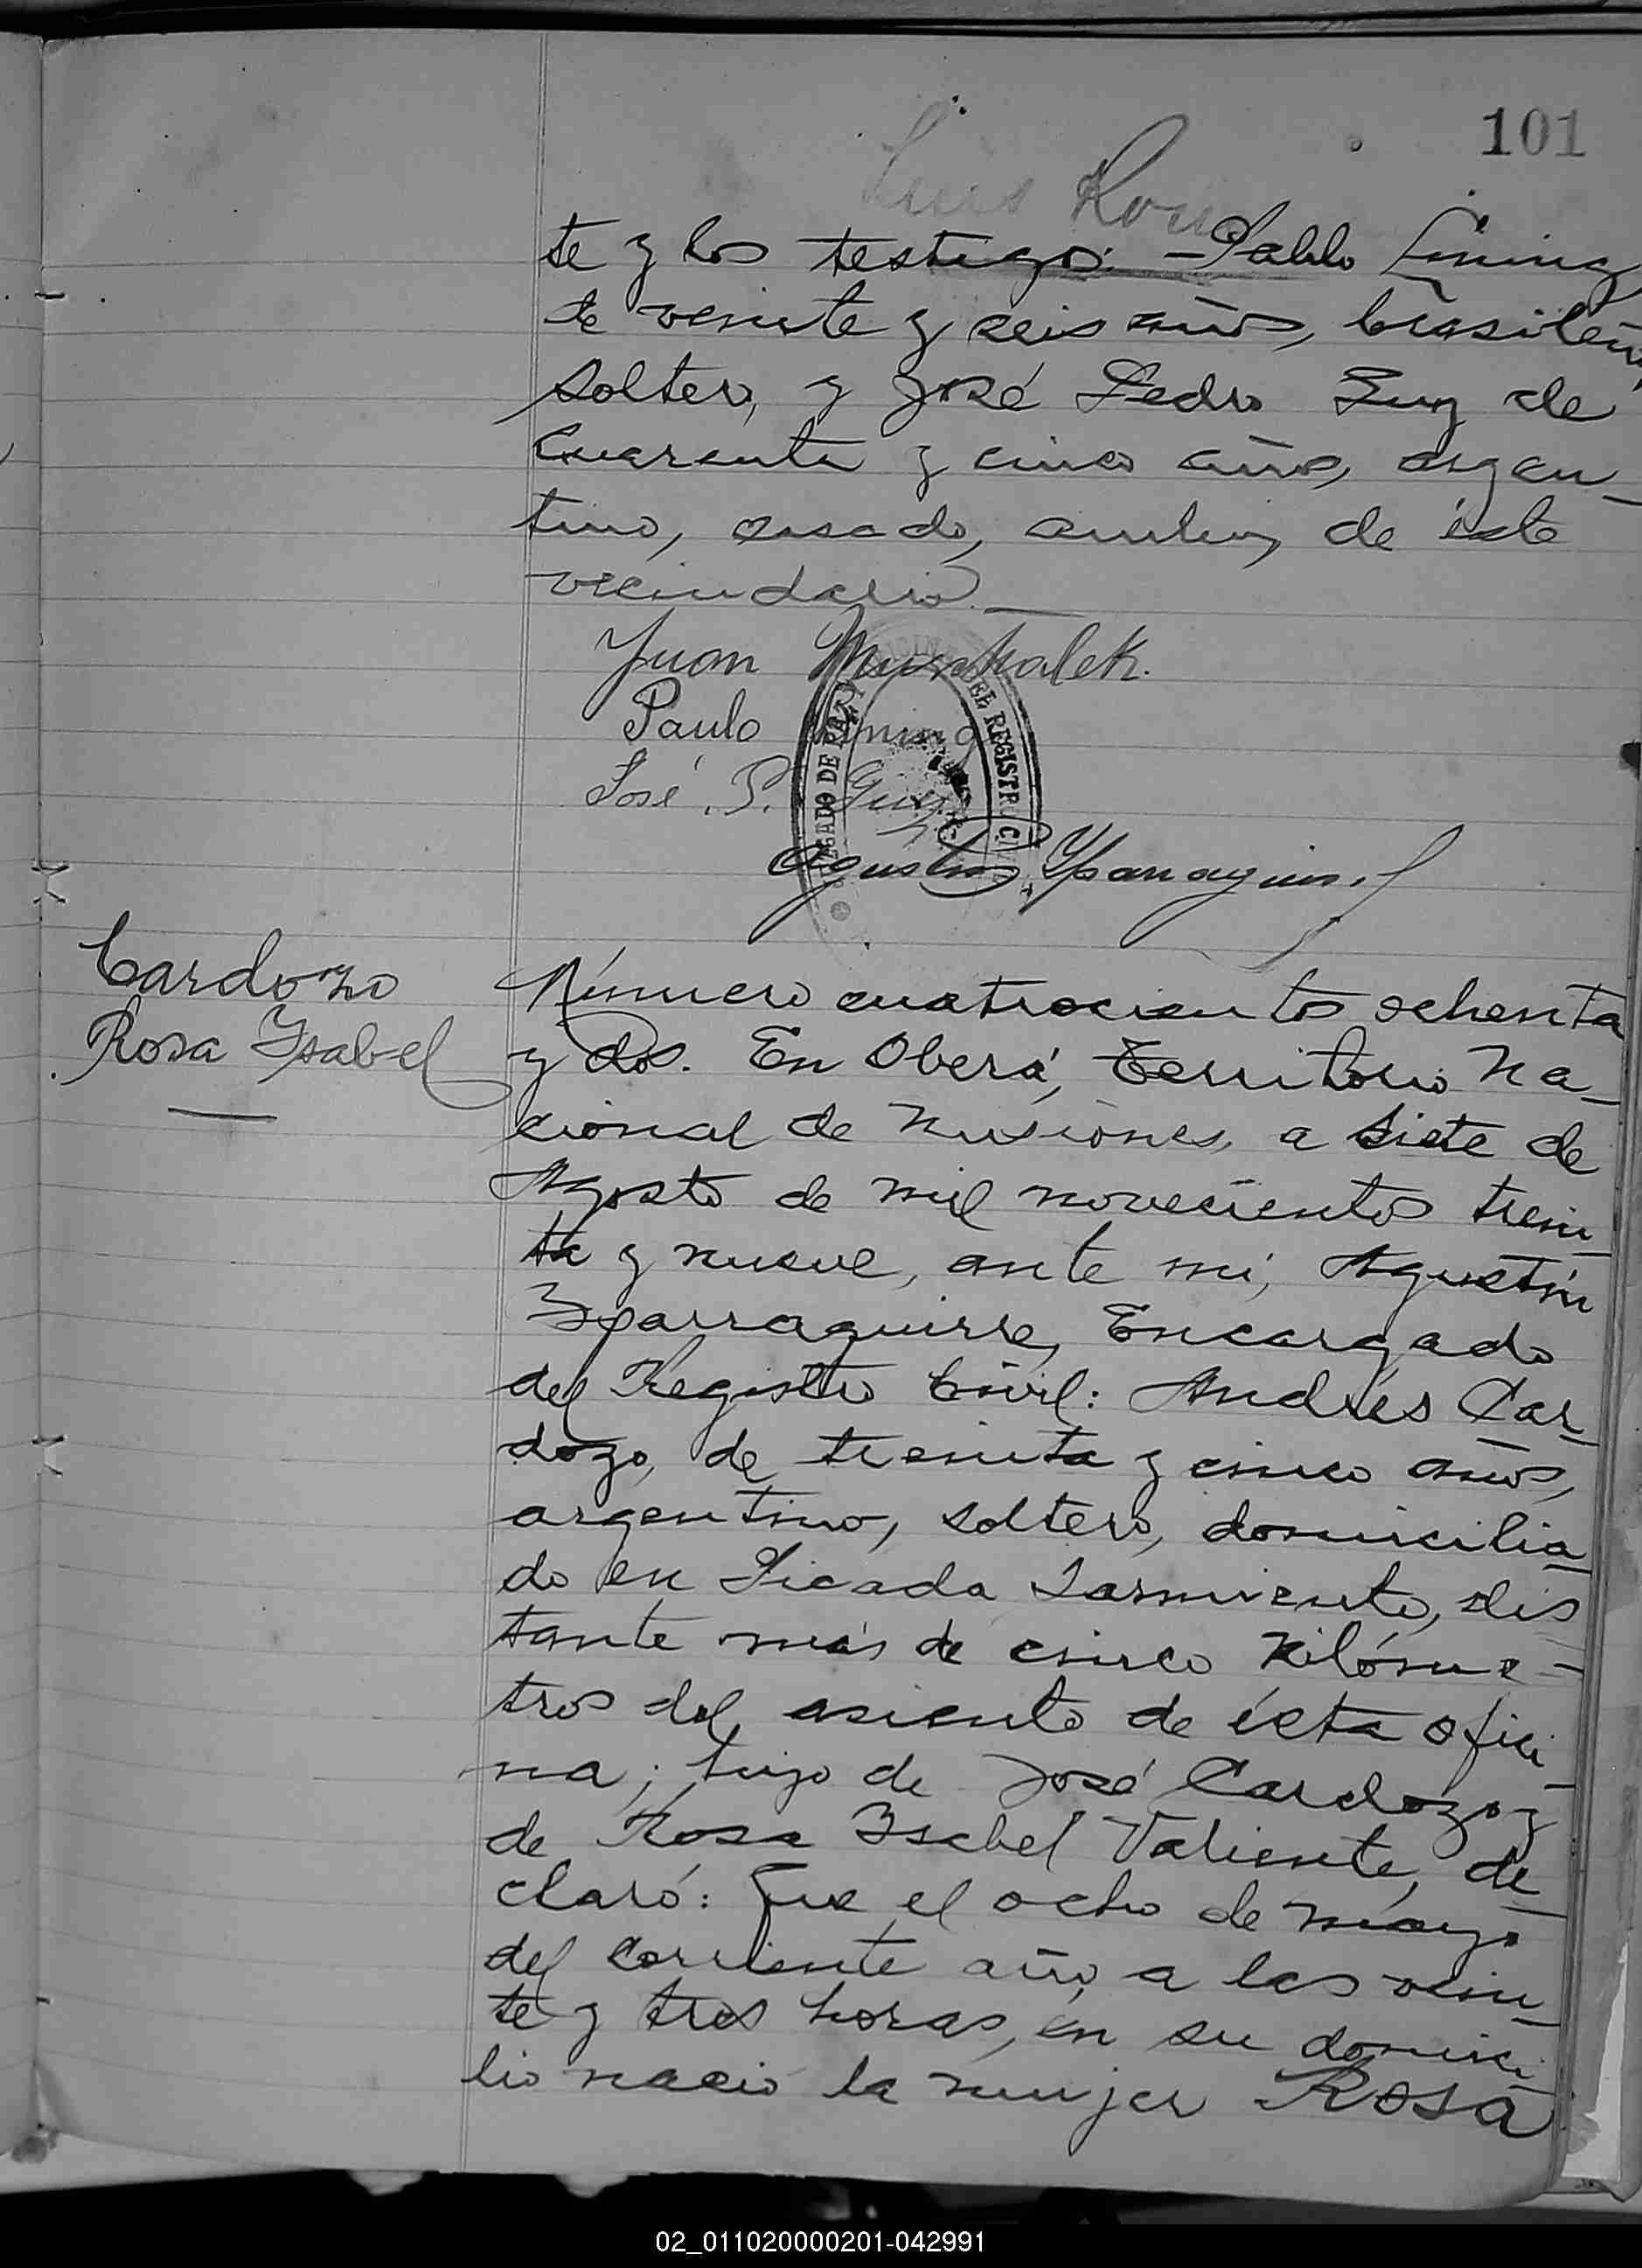 101
Luis
te y los testigos: Pablo
de veinte y seis años, brasileño,
soltero, y José Pedro Luz de
cuarenta y cinco años, argen-
tino, casado, ambos de éste
vecindario.—
Juan
Paulo
José. P.
ENCARGADO DE DEL REGISTRO CIVIL
Agustín Yparraguirre
Cardozo
Rosa Ysabel
Número cuatrocientos ochenta
y dos. En Oberá, Territorio Na-
cional de Misiones, a siete de
Agosto de mil novecientos trein-
ta y nueve, ante mi, Agustín
Yparraguirre, Encargado
del Registro Civil: Andrés Car-
dozo, de treinta y cinco años,
argentino, soltero, domicilia-
do en Picada Sarmiento, dis
tante más de cinco kilóme-
tros del asiento de ésta ofici-
na; hijo de José Cardozo y
de Rosa Ysabel Valiente, de-
claró: Que el ocho de mayo
del corriente año, a las vein-
te y tres horas, en su domici-
lio nació la mujer Rosa
02_011020000201-042991